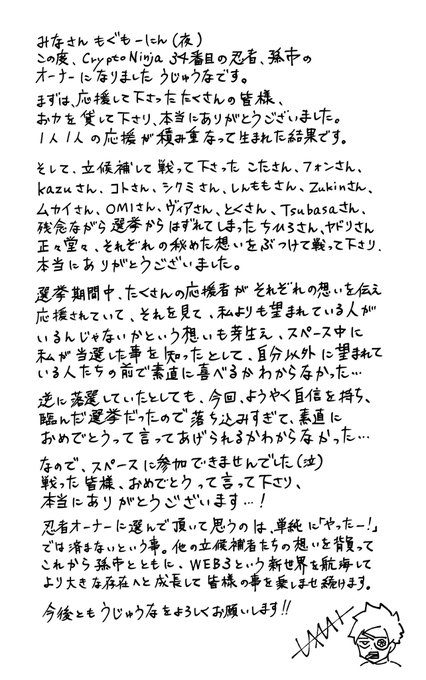 みなさん もぐもーにん(夜)
この度、CryptoNinja 34番目の忍者、孫市の
オーナーになりました うじゅうなです。
まずは、応援して下さったたくさんの皆様、
お力を貸して下り、本当にありがとうございました。
1人1人の応援が積み重なって生まれた結果です。
そして、立候補して戦って下さった こたさん、フォンさん、
kazuさん、コトさん、シクミさん、しんももさん、Zukinさん、
ムカイさん、OMIさん、ヴィアさん、とくさん、Tsubasaさん、
残念ながら選挙からはずれてしまった ちひろさん、ヤドリさん
正々堂々、それぞれの秘めた想いをぶつけて戦って下さり、
本当にありがとうございました。
選挙期間中、たくさんの応援者が それぞれの想いを伝え
応援されていて、それを見て、私よりも望まれている人が
いるんじゃないかという想いも芽生え、スペース中に
私が当選した事を知ったとして、自分以外に望まれて
いる人たちの前で素直に喜べるかわからなかった…
逆に落選していたとしても、今回、ようやく自信を持ち、
臨んだ選挙だったので落ち込みすぎて、素直に
おめでとうって言ってあげられるかわからなかった…
なので、スペースに参加できませんでした(泣)
戦った皆様、おめでとうって言って下り、
本当にありがとうございます…!
忍者オーナーに選んで頂いて思うのは、単純に「やったー!」
では済まないという事。他の立候補者たちの想いを背負って
これから孫市とともに、WEB3という新世界を航海して
より大きな存在へと成長して皆様の事を楽しませ続けます。
今後ともうじゅうなをよろしくお願いします!!